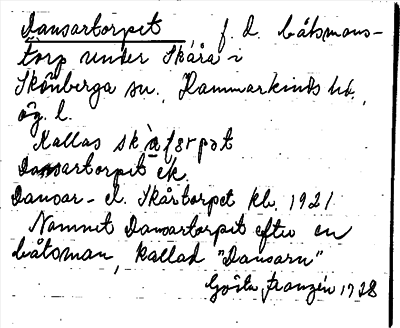 Dansartorpet f. d. båtsmans-
torp under Skåra i
Skönberga sn, Hammarkinds hd.,
Ög. l.
Kallas
Dansartorpet ek.
Dansar- el. Skårtorpet kb. 1921
Namnet Dansartorpet efter en
båtsman, kallad "Dansarn"
Gösta Franzén 1928